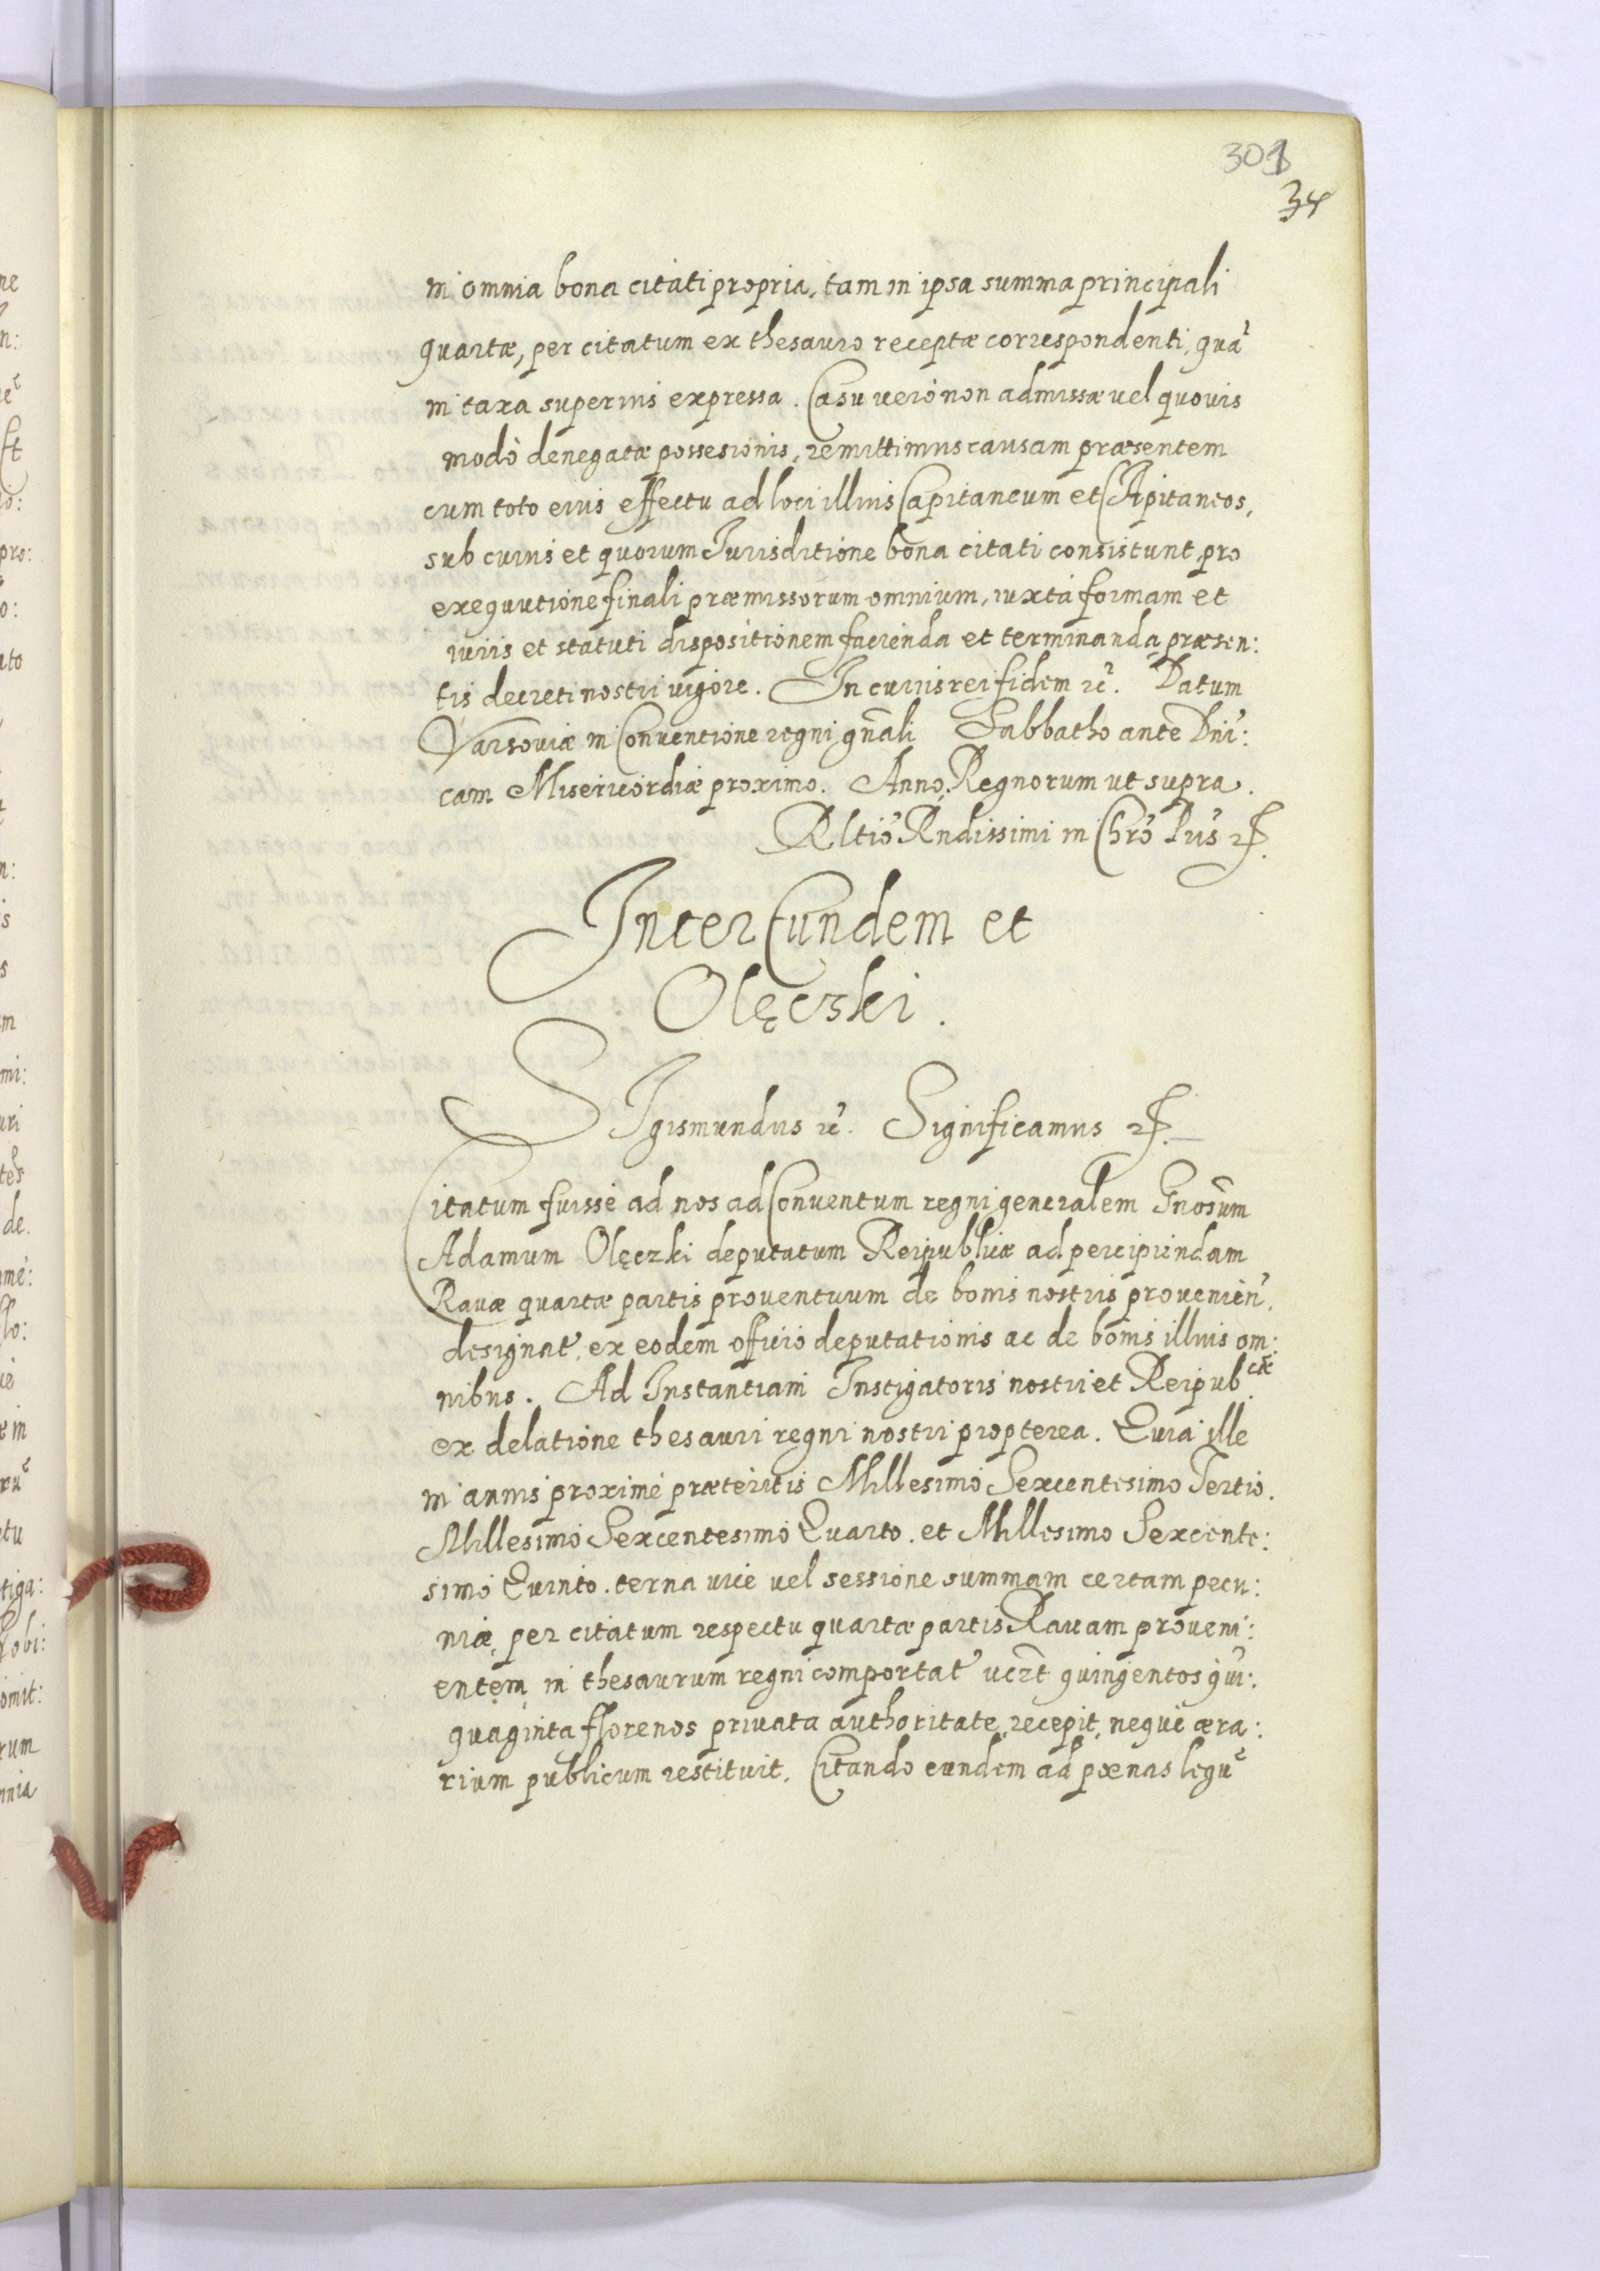 301
34
in omnia bona citati propria, tam in ipsa summa principali
quartæ, per citatum ex thesauro receptæ correspondenti, quã
in taxa superius expressa. Casu verò non admissæ vel quovis
modò denegatæ possesionis, remittimus causam præsentem
cum toto eius effectu ad loci illius Capitaneum et CApitaneos,
sub cuius et quorum Jurisditione bona citati consistunt, pro
exequutione finali præmissorum omnium, iuxta formam et
iuris et statuti dispositionem facienda et terminanda, præsen:
tis decreti nostri vigore. In cuius rei fidem etc̃. Datum
Varsoviæ in Conventione regni gñali Sabbatho ante Dñi:
cam Misericordiæ proximo. Anno, Regnorum ut supra.
Rltiõ Rndissimi in Chrõ Pũs etc.
Inter Eundem et
Olęczki.
SIgismundus etc̃. Significamus etc.
Citatum fuisse ad nos ad Conventum regni generalem Gnosũm
Adamum Olęczki deputatum Reipublicæ ad percipiendam
Ravæ quartæ partis proventuum de bonis nostris provenieñ,
designat̃, ex eodem officio deputationis ac de bonis illius om:
nibus. Ad Instantiam Instigatoris nostri et Reipub.cæ
ex delatione thesauri regni nostri propterea. Quia ille
in annis proximè præteritis Millesimo Sexcentesimo Tertio.
Millesimo Sexcentesimo Quarto. et Millesimo Sexcente:
simo Quinto. terna vice vel sessione summam certam pecu:
niæ, per citatum respectu quartæ partis Ravam proveni:
entem, in thesaurum regni comportat̃ vczt̃ quingentos qũi:
quaginta florenos privata authoritate, recepit, neque æra:
rium publicum restituit. Citando eundem ad pœnas legũ